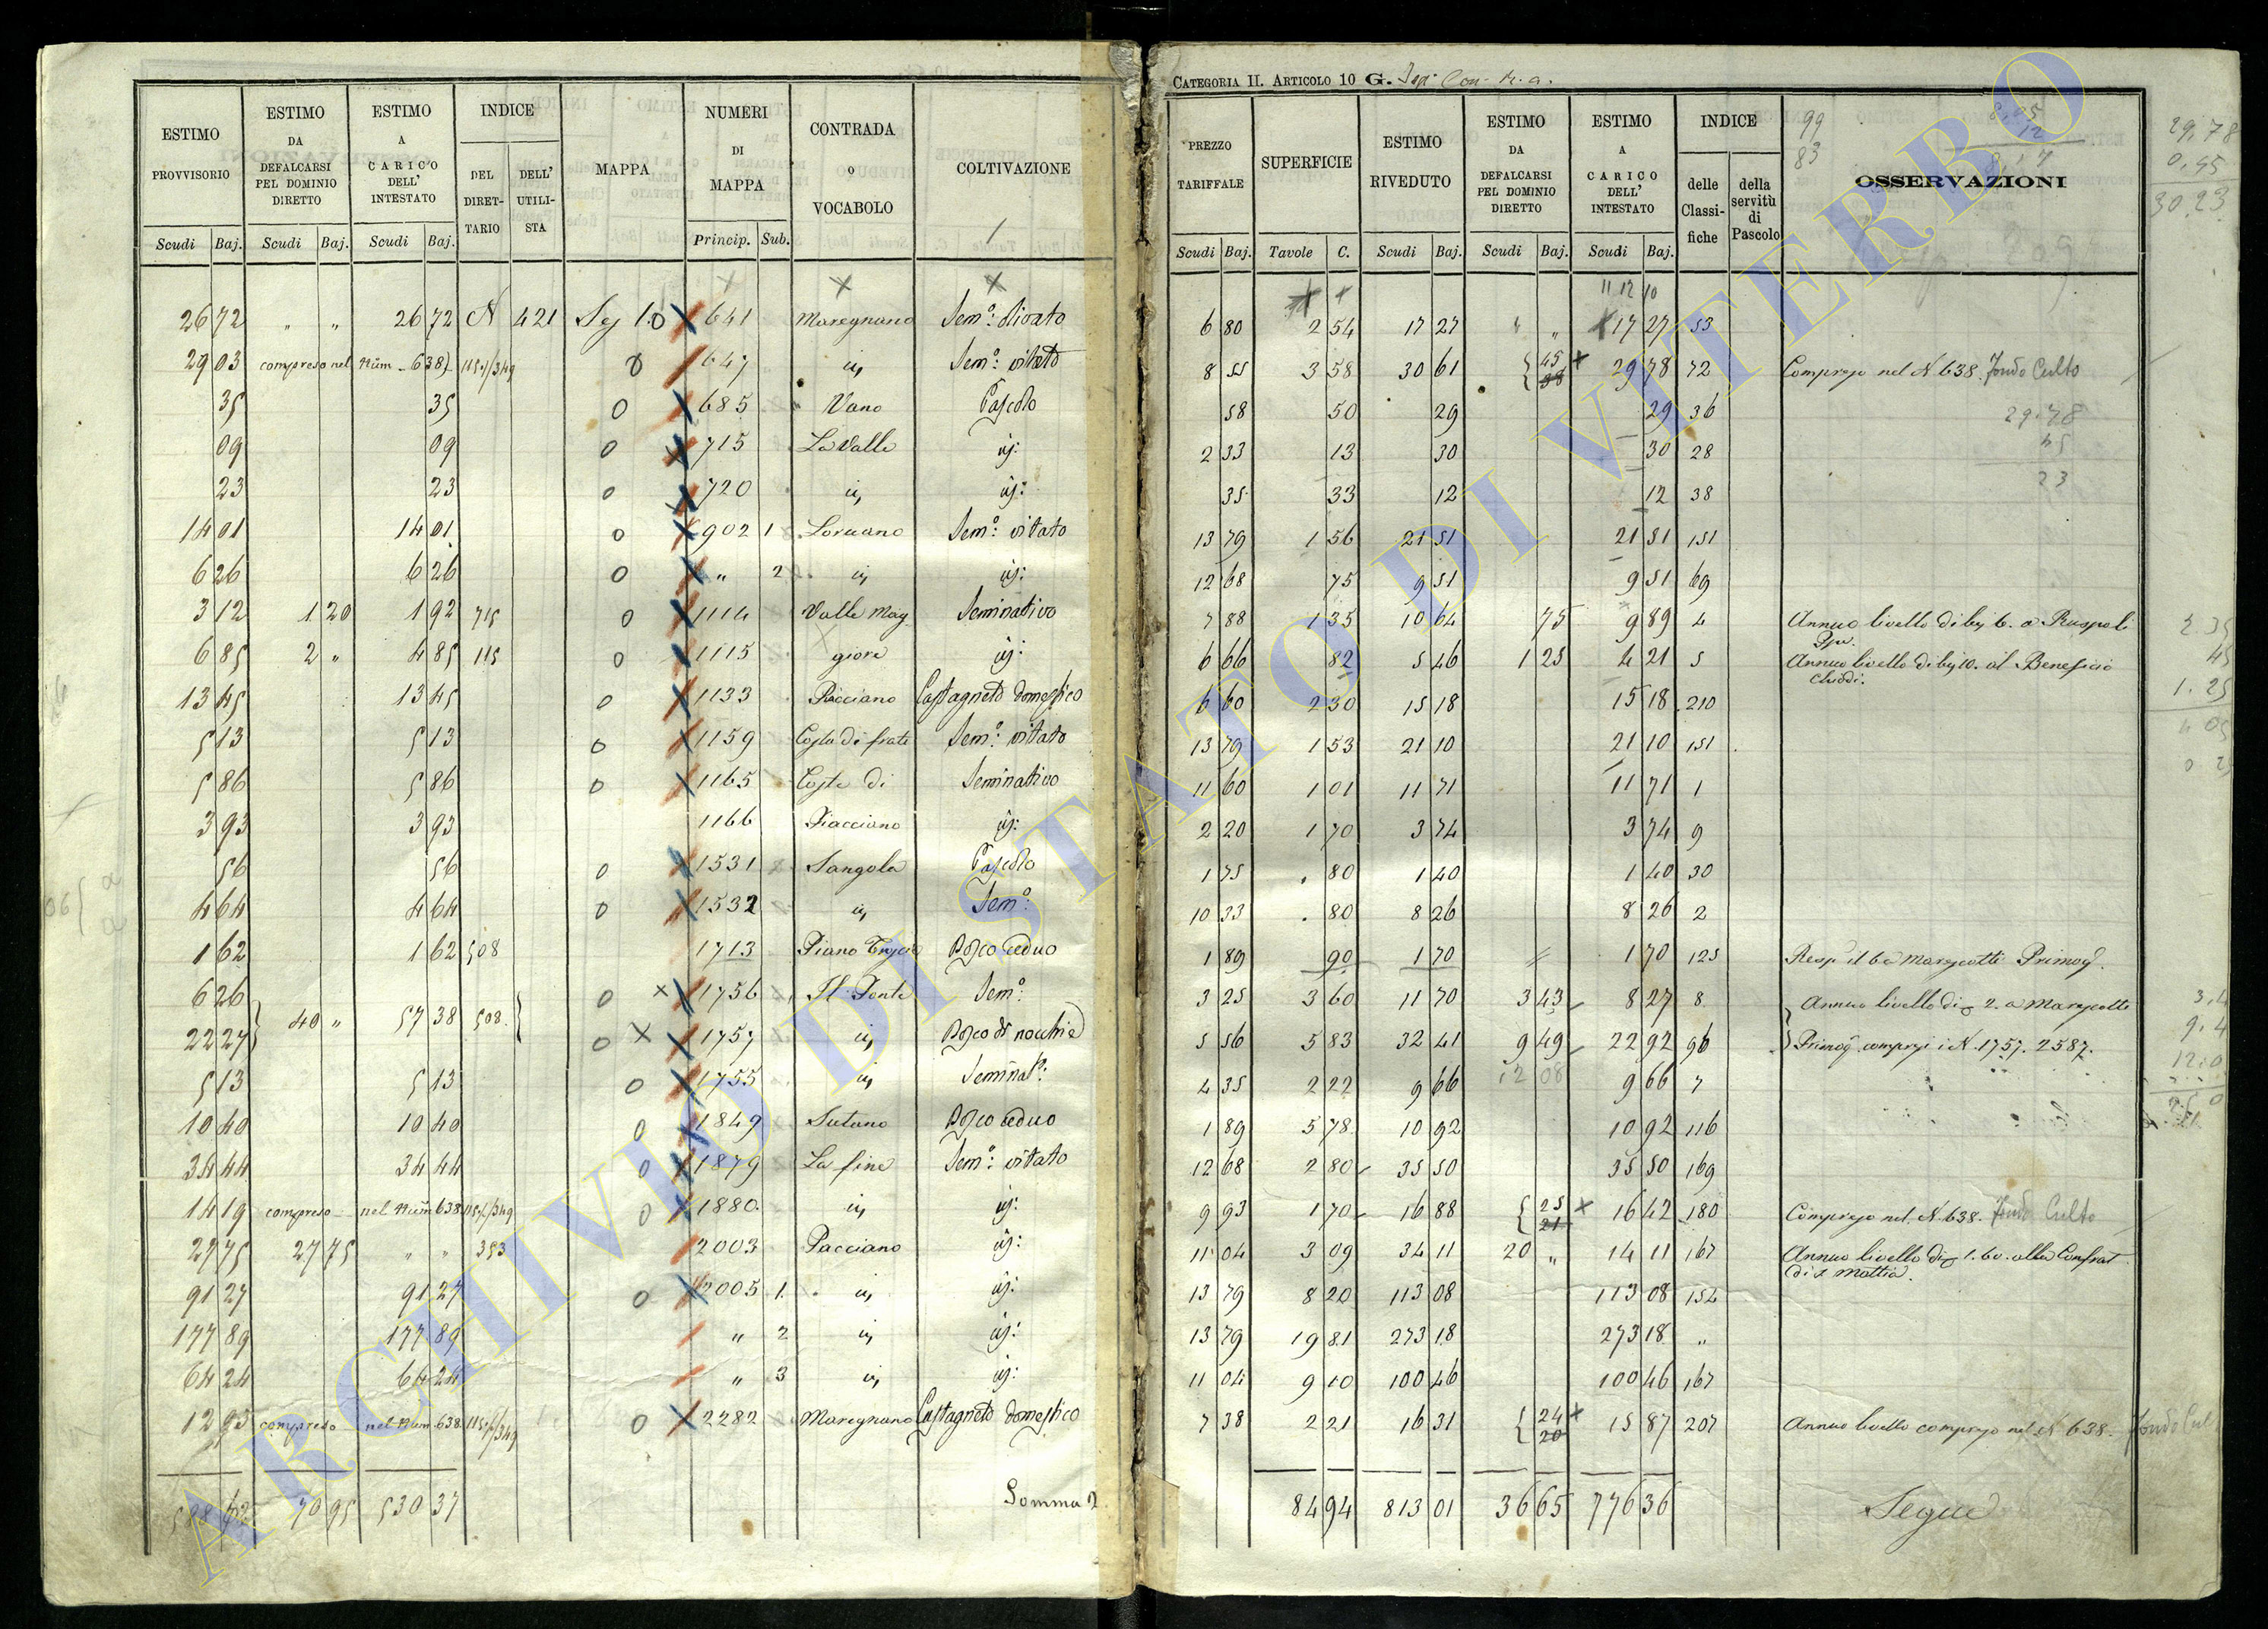 CATEGORIA II. ARTICOLO 10 G.
ESTIMO PROVVISORIO | ESTIMO DA DEFALCARSI PEL DOMINIO DIRETTO | ESTIMO A CARICO DELL' INTESTATO | INDICE DEL DIRETTARIO | DELL' UTILISTA | MAPPA | NUMERI DI MAPPA | CONTRADA o VOCABOLO | COLTIVAZIONE
Scudi | Baj. | Scudi | Baj. | Scudi | Baj. | Princip. | Sub.
26 72 | " " | 26 72 | N 421 | 641 | Maregnano | Sem.o olivato
29 03 | compreso nel Num. 638 | 647 | in | Sem.o vitato
35 | 35 | 0 | 685 | Vano | Pascolo
09 | 09 | 0 | 715 | La Valle
23 | 23 | 0 | 720 | in
14 01 | 14 01 | 0 | 902 1 | Sem.o vitato
6 26 | 6 26 | 0 | " 2 | in
3 12 | 1 20 | 1 92 | 715 | 0 | 1114 | Valle Mag | Seminativo
6 85 | 2 " | 4 85 | 115 | 0 | 1115 | giore
13 45 | 13 45 | 0 | 1133 | Pacciano | Castagneto domestico
5 13 | 5 13 | 0 | 1159 | Costa di frate | Sem.o vitato
5 86 | 5 86 | 0 | 1165 | Coste di | Seminativo
3 93 | 3 93 | 1166 | Piacciano
56 | 56 | 0 | 1531 | Sangola | Pascolo
4 64 | 4 64 | 0 | 1532 | in | Sem.o
1 62 | 1 62 | 508 | 1713 | Piano | Bosco ceduo
6 26 | 0 | 1756 | Il Fonte | Sem.o
40 " | 57 38 | 508
22 27 | 0 | 1757 | in | Bosco di nocchie
5 13 | 5 13 | 0 | 1755 | in
10 40 | 10 40 | 0 | 1849 | Sutano | Bosco ceduo
34 44 | 34 44 | 0 | 1879 | La fine | Sem.o vitato
14 19 | compreso nel Num 638 | 0 | 1880 | in
27 75 | 27 75 | " " | 353 | 2003 | Pacciano
91 27 | 91 27 | 0 | 2005 1 | in
177 89 | 177 89 | " 2 | in
64 24 | 64 24 | " 3 | in
12 95 | compreso nel Num. 638 | 0 | 2282 | Maregnano | Castagneto domestico
70 95 | 530 37 | Somma
PREZZO TARIFFALE | SUPERFICIE | ESTIMO RIVEDUTO | ESTIMO DA DEFALCARSI PEL DOMINIO DIRETTO | ESTIMO A CARICO DELL' INTESTATO | INDICE delle Classifiche | della servitù di Pascolo | OSSERVAZIONI
Scudi | Baj. | Tavole | C. | Scudi | Baj. | Scudi | Baj. | Scudi | Baj.
99
83
29.78
0.45
30.23
11 12 10
6 80 | 2 54 | 17 27 | " " | 17 27 | 53
8 55 | 3 58 | 30 61 | 45 38 | 29 78 | 72 | Compreso nel N. 638. Fondo Culto
58 | 50 | 29 | 29 | 36
2 33 | 13 | 30 | 30 | 28
35 | 33 | 12 | 12 | 38
13 79 | 1 56 | 21 51 | 21 51 | 151
12 68 | 75 | 9 51 | 9 51 | 69
7 88 | 1 35 | 10 64 | 75 | 9 89 | 4 | Annuo livello di bj 6. a Ruspoli
6 66 | 82 | 5 46 | 1 25 | 4 21 | 5 | Annuo livello di bj 10. al Beneficio
6 60 | 2 30 | 15 18 | 15 18 | 210
13 79 | 1 53 | 21 10 | 21 10 | 151
11 60 | 1 01 | 11 71 | 11 71 | 1
2 20 | 1 70 | 3 74 | 3 74 | 9
1 75 | 80 | 1 40 | 1 40 | 30
10 33 | 80 | 8 26 | 8 26 | 2
1 89 | 90 | 1 70 | 1 70 | 125
3 25 | 3 60 | 11 70 | 3 43 | 8 27 | 8 | Annuo livello di 2. a Marescotti
5 56 | 5 83 | 32 41 | 9 49 | 22 92 | 96 | Primog. compresi i N. 1757. 2587.
4 35 | 2 22 | 9 66 | 12 08 | 9 66 | 7
1 89 | 5 78 | 10 92 | 10 92 | 116
12 68 | 2 80 | 35 50 | 35 50 | 169
9 93 | 1 70 | 16 88 | 25 21 | 16 42 | 180 | Compreso nel N. 638. Fondo Culto
11 04 | 3 09 | 34 11 | 20 " | 14 11 | 167 | Annuo livello di 1.60. alla Confrat
di S. Mattia.
13 79 | 8 20 | 113 08 | 113 08 | 154
13 79 | 19 81 | 273 18 | 273 18 | "
11 04 | 9 10 | 100 46 | 100 46 | 167
7 38 | 2 21 | 16 31 | 24 20 | 15 87 | 207 | Annuo livello compreso nel N 638.
84 94 | 813 01 | 36 65 | 776 36 | Segue
ARCHIVIO DI STATO DI VITERBO